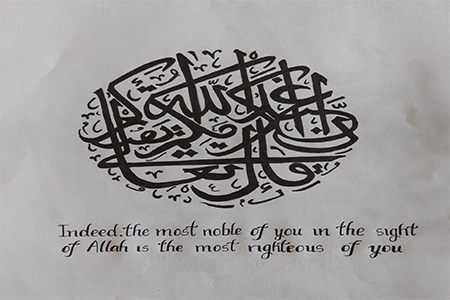 قال تعالى
إن أكرمكم عند الله أتقاكم
Indeed.the most noble of you in the sight
of Allah is the most righteous of you